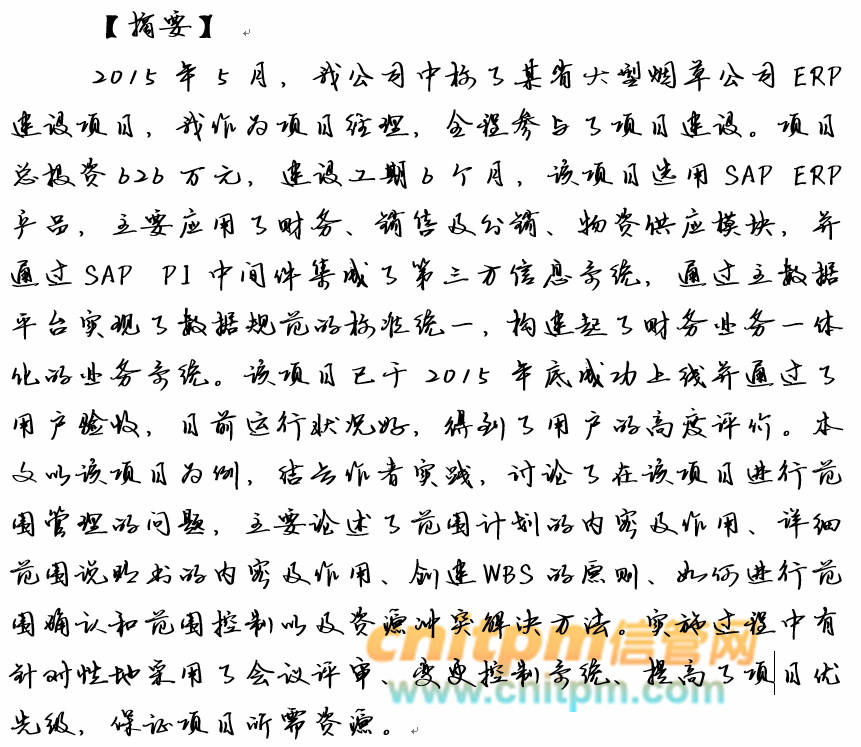 【摘要】
2015年5月，我公司中标了某省大型烟草公司ERP
建设项目，我作为项目经理，全程参与了项目建设。项目
总投资626万元，建设工期6个月，该项目选用SAP ERP
产品，主要应用了财务、销售及分销、物资供应模块，并
通过SAP PI中间件集成了第三方信息系统，通过主数据
平台实现了数据规范的标准统一，构建起了财务业务一体
化的业务系统。该项目已于2015年底成功上线并通过了
用户验收，目前运行状况好，得到了用户的高度评价。本
文以该项目为例，结合作者实践，讨论了在该项目进行范
围管理的问题，主要论述了范围计划的内容及作用、详细
范围说明书的内容及作用、创建WBS的原则、如何进行范
围确认和范围控制以及资源冲突解决方法。实施过程中有
针对性地采用了会议评审、变更控制系统、提高了项目优
先级，保证项目所需资源。
cnitpm信管网
www.cnitpm.com